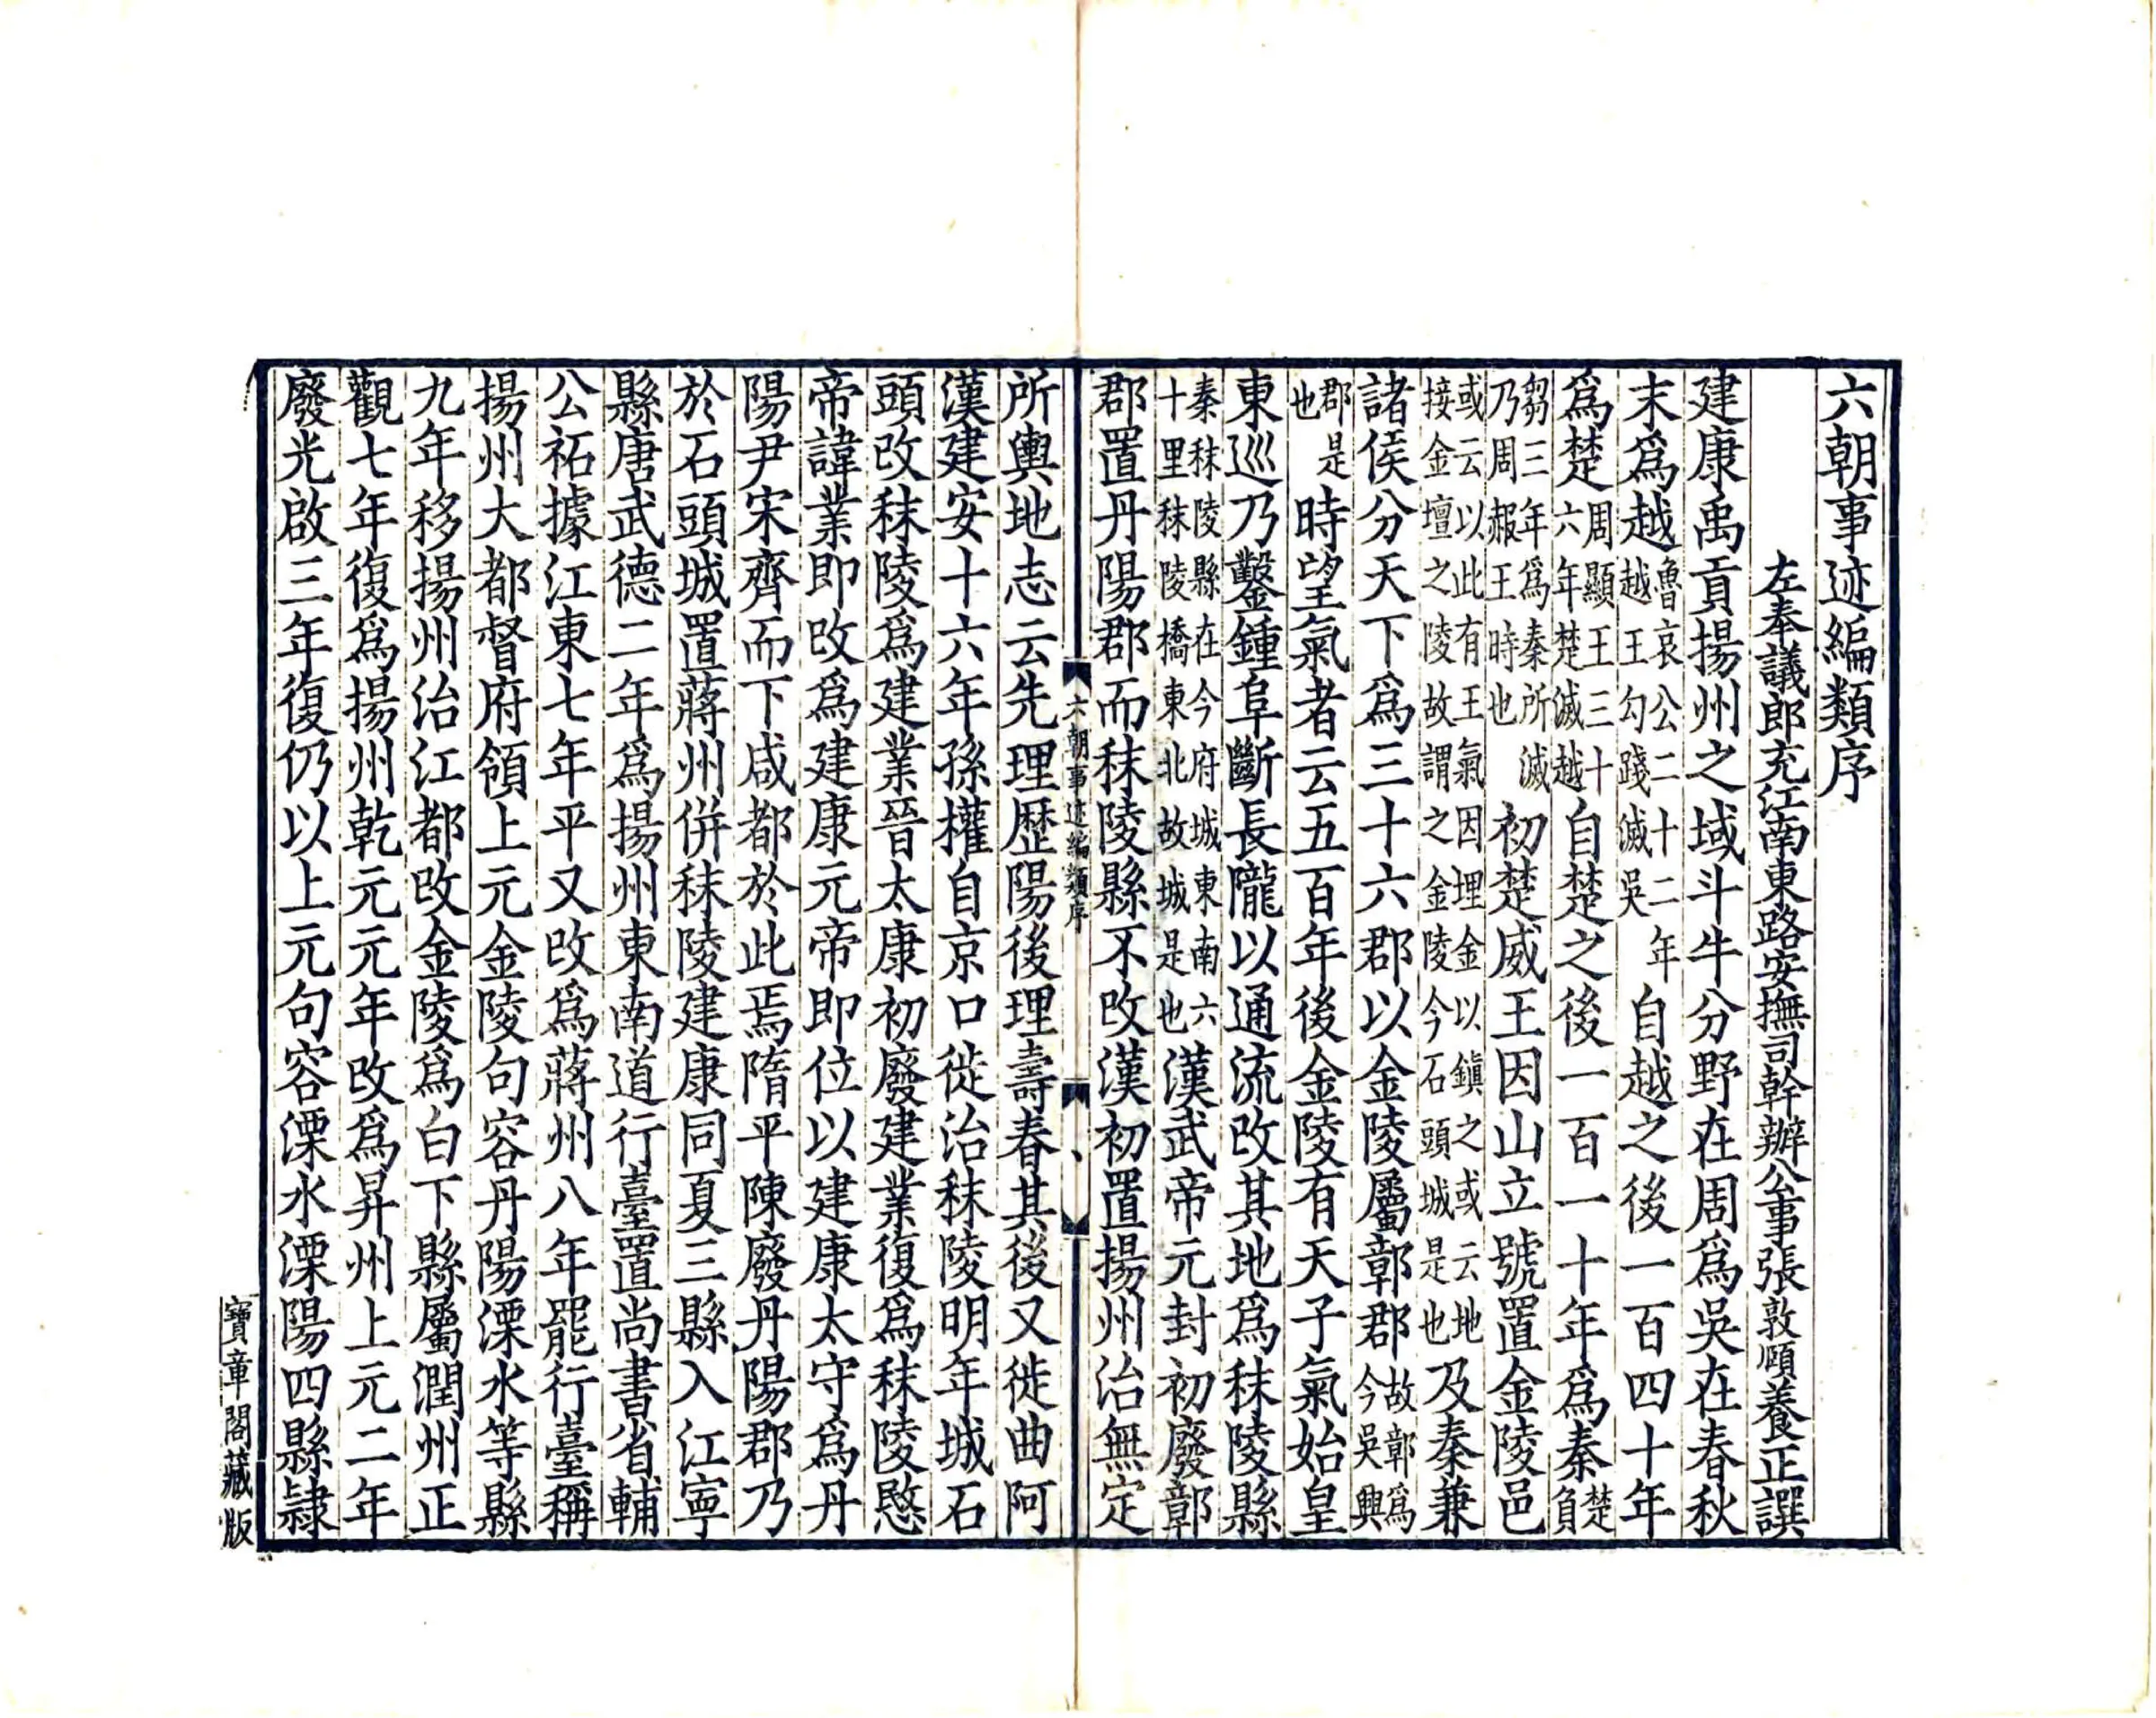 六朝事迹編類序
左奉議郎充江南東路安撫司幹辦公事張敦頤養正譔
建康禹貢揚州之域斗牛分野在周爲吳在春秋
末爲越魯哀公二十二年越王勾踐滅吳自越之後一百四十年
爲楚周顯王三十六年楚滅越自楚之後一百一十年爲秦楚負
芻三年爲秦所滅乃周赧王時也初楚威王因山立號置金陵邑
或云以此有王氣因埋金以鎭之或云地接金壇之陵故謂之金陵今石頭城是也及秦兼
諸侯分天下爲三十六郡以金陵屬鄣郡故鄣爲今吳興
郡是也時望氣者云五百年後金陵有天子氣始皇
東巡乃鑿鍾阜斷長隴以通流改其地爲秣陵縣
秦秣陵縣在今府城東南六十里秣陵橋東北故城是也漢武帝元封初廢鄣
郡置丹陽郡而秣陵縣不改漢初置揚州治無定
六朝事迹編類序
所輿地志云先理歷陽後理壽春其後又徙曲阿
漢建安十六年孫權自京口徙治秣陵明年城石
頭改秣陵爲建業晉太康初廢建業復爲秣陵愍
帝諱業即改爲建康元帝即位以建康太守爲丹
陽尹宋齊而下咸都於此焉隋平陳廢丹陽郡乃
於石頭城置蔣州併秣陵建康同夏三縣入江寧
縣唐武德二年爲揚州東南道行臺置尚書省輔
公祏據江東七年平又改爲蔣州八年罷行臺稱
揚州大都督府領上元金陵句容丹陽溧水等縣
九年移揚州治江都改金陵爲白下縣屬潤州正
觀七年復爲揚州乾元元年改爲昇州上元二年
廢光啟三年復仍以上元句容溧水溧陽四縣隸
寶章閣藏版